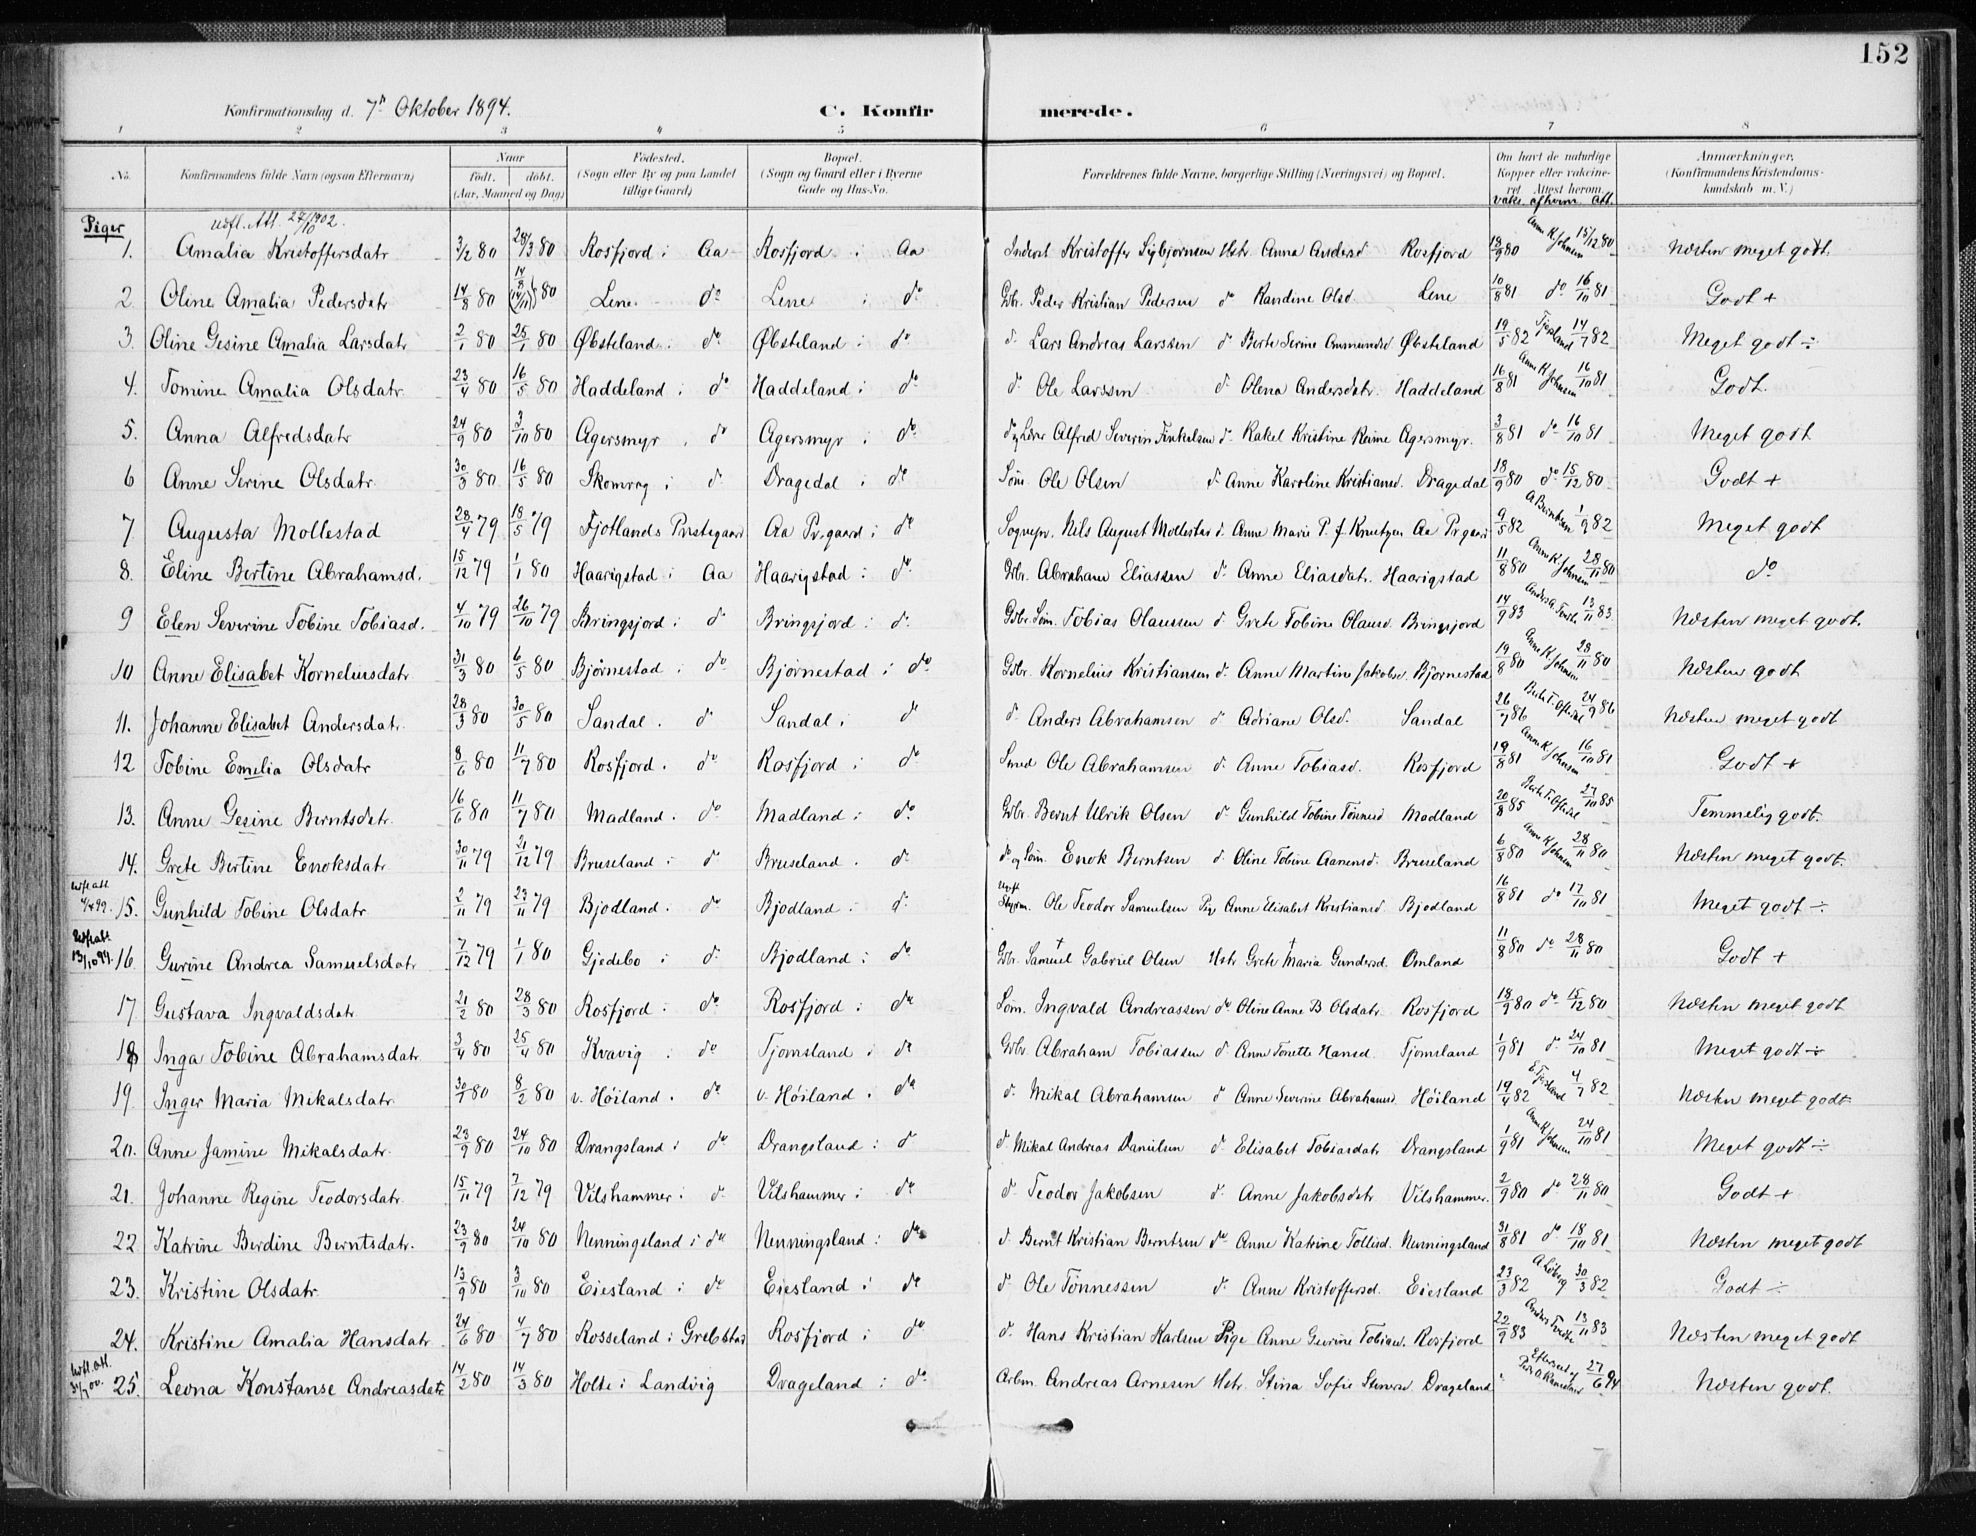 152
Konfirmationsdag d. 7de Oktober 1894. C. Konfirmerede.
1 2 3 4 5 6 7 8
No. Konfirmandens fulde Navn (ogsaa Efternavn) Naar født. døbt. (Aar, Maaned og Dag) Fødested. (Sogn eller By og paa Landet tillige Gaard) Bopæl. (Sogn og Gaard eller i Byerne Gade og Hus-No. Forældrenes fulde Navne, borgerlige Stilling (Næringsvei) og Bopæl. Om havt de naturlige Kopper eller vaccineret. Attest herom. Anmærkninger, (Konfirmandens Kristendomskundskab m. V.)
vaks. af hvem. Att.
Piger udfl. Att. 27/10 1902.
1. Amalia Kristoffersdatr 3/2 80 28/3 80 Rosfjord i Aa Rosfjord i Aa Inderst Kristoffer Sigbjørnsen Hstr. Anna Andersd Rosfjord 18/9 80 Anne K Johnsen 15/12 80 Næsten meget godt.
2 Oline Amalia Pedersdatr 14/8 80 14/8 (14/11) 80 Lene do Lene i do Gbr. Peder Kristian Pedersen do Randine Olsd. Lene 10/8 81 do 16/10 81 Godt +
3. Oline Gesine Amalia Larsdatr 2/1 80 25/1 80 Øbsteland i do Øbsteland i do d. Lars Andreas Larssen d Berte Serine Ammundsd Øbsteland 19/5 82 Fjesland 14/7 82 Meget godt ÷
4. Tomine Amalia Olsdatr 23/4 80 16/5 80 Haddeland i do Haddeland i do d Ole Larssen d. Olena Andersdatr. Haddeland 16/8 81 Anne K Johnsen 16/10 81 Godt.
5. Anna Alfredsdatr 24/9 80 3/10 80 Agersmyr i do Agersmyr i do d. og Lærer Alfred Severin Finkelsen d. Rakel Kristine Reime Agersmyr. 3/8 81 do 16/10 81 Meget godt
6 Anne Serine Olsdatr 30/3 80 16/5 80 Skomrag i d. Dragedal i do Søm. Ole Olsen d. Anne Karoline Kristiansd. Dragedal 18/9 80 do 15/12 80 Godt +
7 Augusta Mollestad 28/4 79 18/5 79 Fjotlands Prestegaard Aa Pr.gaard i do Sognepr. Nils August Mollestad d. Anne Marie P. f. Knutzen Aa Pr.gaard 9/5 82 A Berntsen 1/9 82 Meget godt
8. Eline Bertine Abrahamsd. 15/12 79 1/1 80 Haarigstad i Aa Haarigstad i do Gbr. Abraham Eliassen d. Anne Eliasdatr. Haarigstad 11/8 80 Anne K Johnsen 28/11 80 do
9 Elen Severine Tobine Tobiasd. 4/10 79 26/10 79 Bringsjord i d Bringsjord i d. Gbr. Søm. Tobias Olaussen d. Grete Tobine Olausd. Bringsjord 14/9 83 13/11 83 Næsten meget godt.
10 Anne Elisabet Korneliusdatr 31/3 80 6/5 80 Bjørnestad i do Bjørnestad i do Gbr. Kornelius Kristiansen d. Anne Martine Jakobsd. Bjørnestad 19/8 80 Anne K Johnsen 28/11 80 Næsten godt
11. Johanne Elisabet Andersdatr. 28/3 80 30/5 80 Sandal i d Sandal i d d. Anders Abrahamsen d Adriane Olsd. Sandal 26/7 86 Berte T. Oftedal 24/9 86 Næsten meget godt
12 Tobine Emelia Olsdatr 8/6 80 11/7 80 Rosfjord i do Rosfjord i do Smed Ole Abrahamsen d. Anne Tobiasd. Rosfjord 19/8 81 Anne K Johnsen 16/10 81 Godt +
13. Anne Gesine Berntsdatr. 16/6 80 11/7 80 Madland i do Madland i do Gbr. Bernt Ulrik Olsen d Gunhild Tobine Tønnesd Madland 20/8 85 Berte T. Oftedal 27/10 85 Temmelig godt.
14. Grete Bertine Enoksdatr 30/11 79 21/12 79 Bruseland i d Bruseland. d. do og Søm. Enok Berntsen d. Oline Tobine Aanensd. Bruseland 6/8 80 Anne K Johnsen 28/11 80 Næsten meget godt.
Udfl. att 4/4 99. 15. Gunhild Tobine Olsdatr 2/11 79 23/11 79 Bjødland i do Bjødland i d. Ugift Styrm. Ole Teodor Samuelsen Pige Anne Elisabet Kristiansd Bjødland 16/8 81 do 17/10 81 Meget godt ÷
Udfl. att. 13/10 99. 16 Gurine Andrea Samuelsdatr 7/12 79 1/1 80 Gjedebo i d. Bjødland i do Gbr. Samuel † Gabriel Olsen Hstr Grete † Maria Gundersd. Omland 11/8 80 do 28/11 80 Godt +
17 Gustava Ingvaldsdatr 21/2 80 28/3 80 Rosfjord i do Rosfjord i do Søm. Ingvald Andreassen do Oline Anne B Olsdatr Rosfjord 18/9 80 do 15/12 80 Næsten meget godt
18 Inga Tobine Abrahamsdatr 3/4 80 25/4 80 Kvavig i do Tjomsland i do Gbr Abraham Tobiassen d. Anne Tonette Hansd. Tjomsland 1/9 81 d. 24/10 81 Meget godt ÷
19 Inger Maria Mikalsdatr. 30/1 80 8/2 80 v. Høiland i do v. Høiland i do d. Mikal Abrahamsen d Anne Severine Abrahamsd Høiland 19/4 82 E Fjesland 4/7 82 Næsten meget godt
20. Anne Jamine Mikalsdatr. 23/9 80 24/10 80 Drangsland i do Drangsland i d d Mikal Andreas Danielsen d Elisabet Tobiasdatr Drangsland 1/9 81 Anne K Johnsen 24/10 81 Meget godt ÷
21. Johanne Regine Teodorsdatr. 15/11 79 7/12 79 Vilshammer i d. Vilshammer i do d. Teodor Jakobsen d. Anne Jakobsdatr. Vilshammer. 2/9 80 do 28/11 80 Godt +
22 Katrine Berdine Berntsdatr. 23/9 80 24/10 80 Nenningsland i do Nenningsland i do d. Bernt Kristian Berntsen do Anne Katrine Tollisd. Nenningsland 31/8 81 do 18/10 81 Næsten meget godt
23. Kristine Olsdatr 13/9 80 3/10 80 Eiesland i do Eiesland i do d Ole Tønnessen d. Anne Kristoffersd. Eiesland 23/3 82 30/3 82 Godt ÷
24. Kristine Amalia Hansdatr 24/6 80 4/7 80 Rosseland i Grebstad Rosfjord i do d. Hans Kristian Karlsen Pige Anne Gurine Tobiasd. Rosfjord 22/9 83 13/11 83 Næsten meget godt
Udfl. att. 25. Leona Konstanse Andreasdatr 14/2 80 14/3 80 Holte i Landvig Drageland i do Arbm. Andreas Arnesen Hstr. Stina Sofie Drageland 27/6 94 Næsten godt.